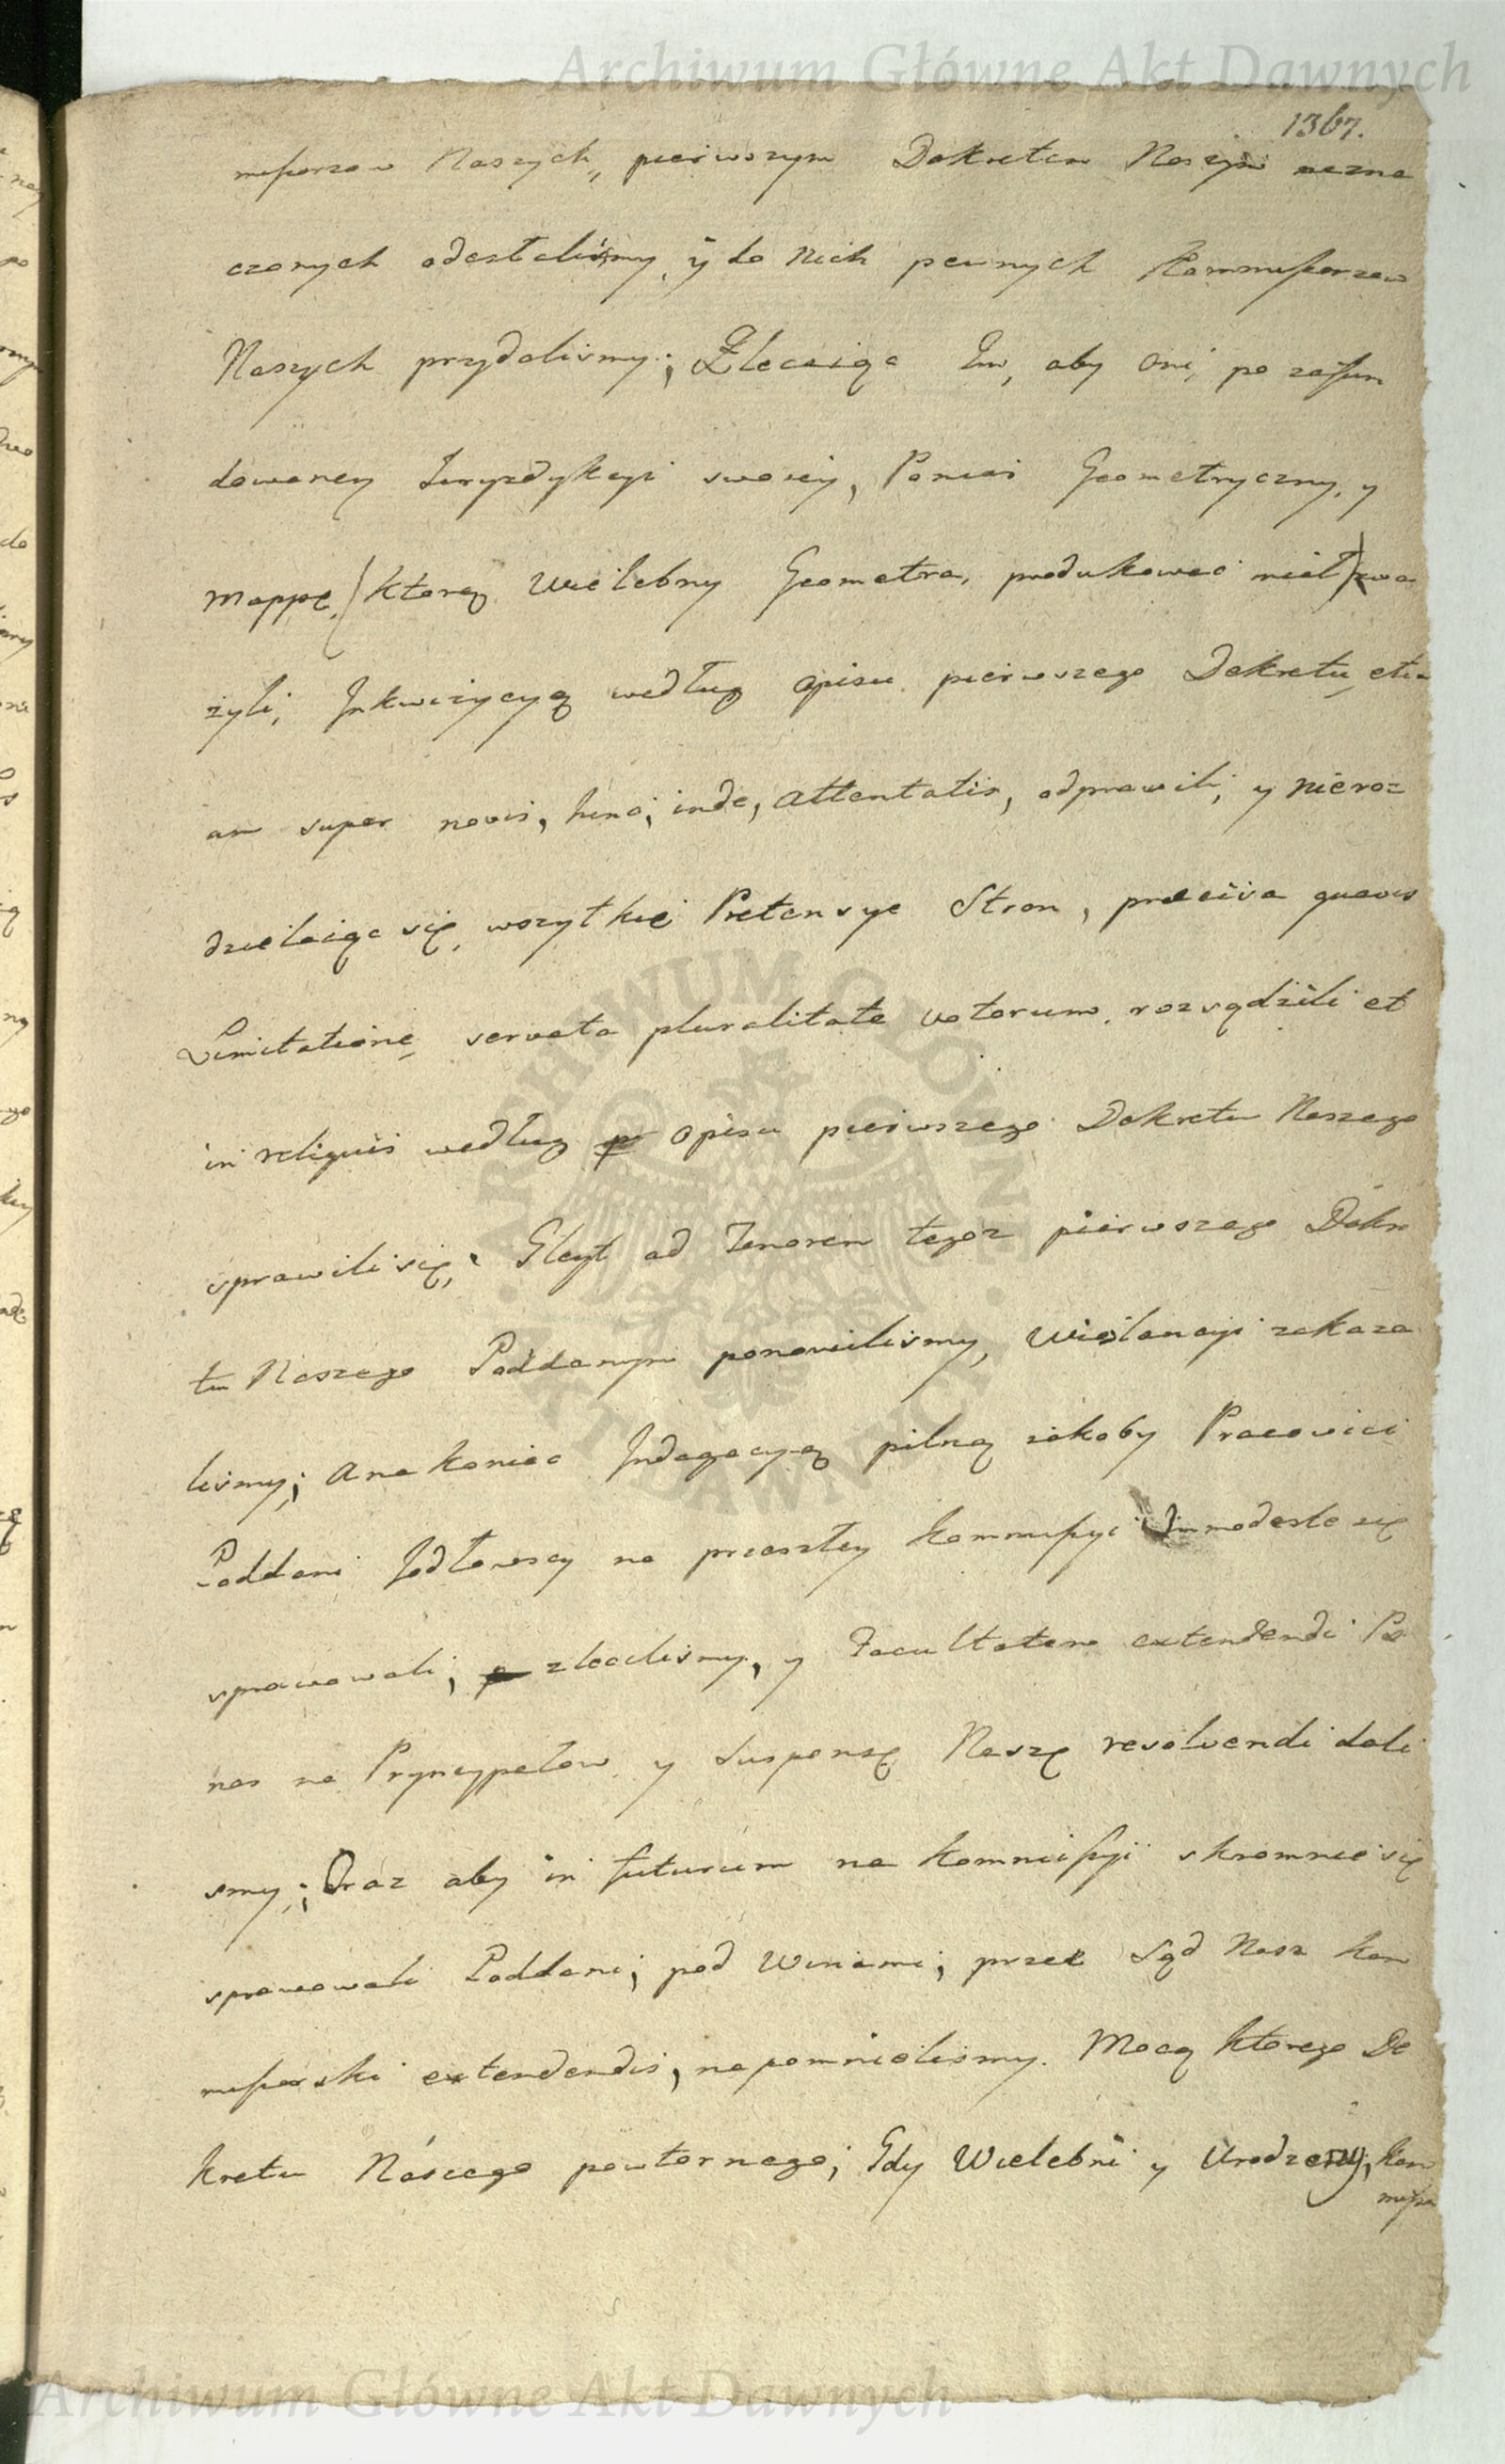 1367.
missarzow Naszych, pierwszym Dekretem Naszym nazna
czonych odestalismy, y do Nich pewnych Kommissarzow
Naszych przydalismy; Zlecaiąc Im, aby oni, po zafun
dowaney Juryzdykcyi swoiey, Pomiar Geometryczny, y
Mappę, (ktorą Wielebny Geometra, produkowac miał) zwa
żyli; Inkwizycyą według opisu pierwszego Dekretu, eti
am super novis, hinc, inde, attentatis, odprawili; y nieroz
dzielaiąc się, wszytkie Pretensye Stron, praecisa quavis
Limitatione, servata pluralitate votorum, rozsądzili et
in reliquis według opisu pierwszego Dekretu Naszego
sprawili się; Gleyt ad Tenorem tegoz pierwszego Dekre
tu Naszego Poddanym ponowilismy, Wiolencyi zakaza
lismy; a na koniec Indagacyą pilną iakoby Pracowici
Poddani Jodłowscy na przeszłey Kommissyi Immodeste się
sprawowali, zleciliśmy, y Facultatem extendendi Pe
nas na Pryncypałow y Suspensę Naszę resolvendi dali
smy; Oraz aby in futurum na Kommissyi skromnie się
sprawowali Poddani, pod Winami, przez Sąd Nasz Kom
missarski extendendis, napomnielismy. Mocą ktorego De
kretu Naszego powtornego; Gdy Wielebni y Urodzeny, Kom
missa
Archiwum Główne Akt Dawnych
ARCHIWUM GŁÓWNE AKT DAWNYCH
Archiwum Główne Akt Dawnych